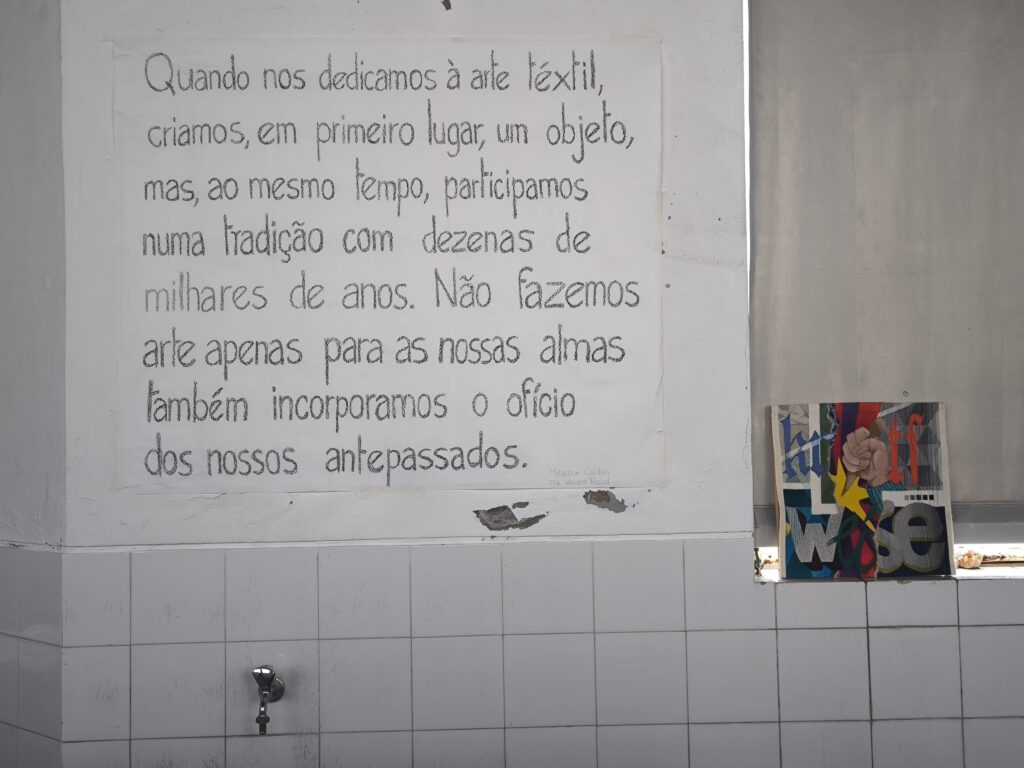 Quando nos dedicamos à arte têxtil,
criamos, em primeiro lugar, um objeto,
mas, ao mesmo tempo, participamos
numa tradição com dezenas de
milhares de anos. Não fazemos
arte apenas para as nossas almas
também incorporamos o ofício
dos nossos antepassados.
Meadow
The Woven Road
wse